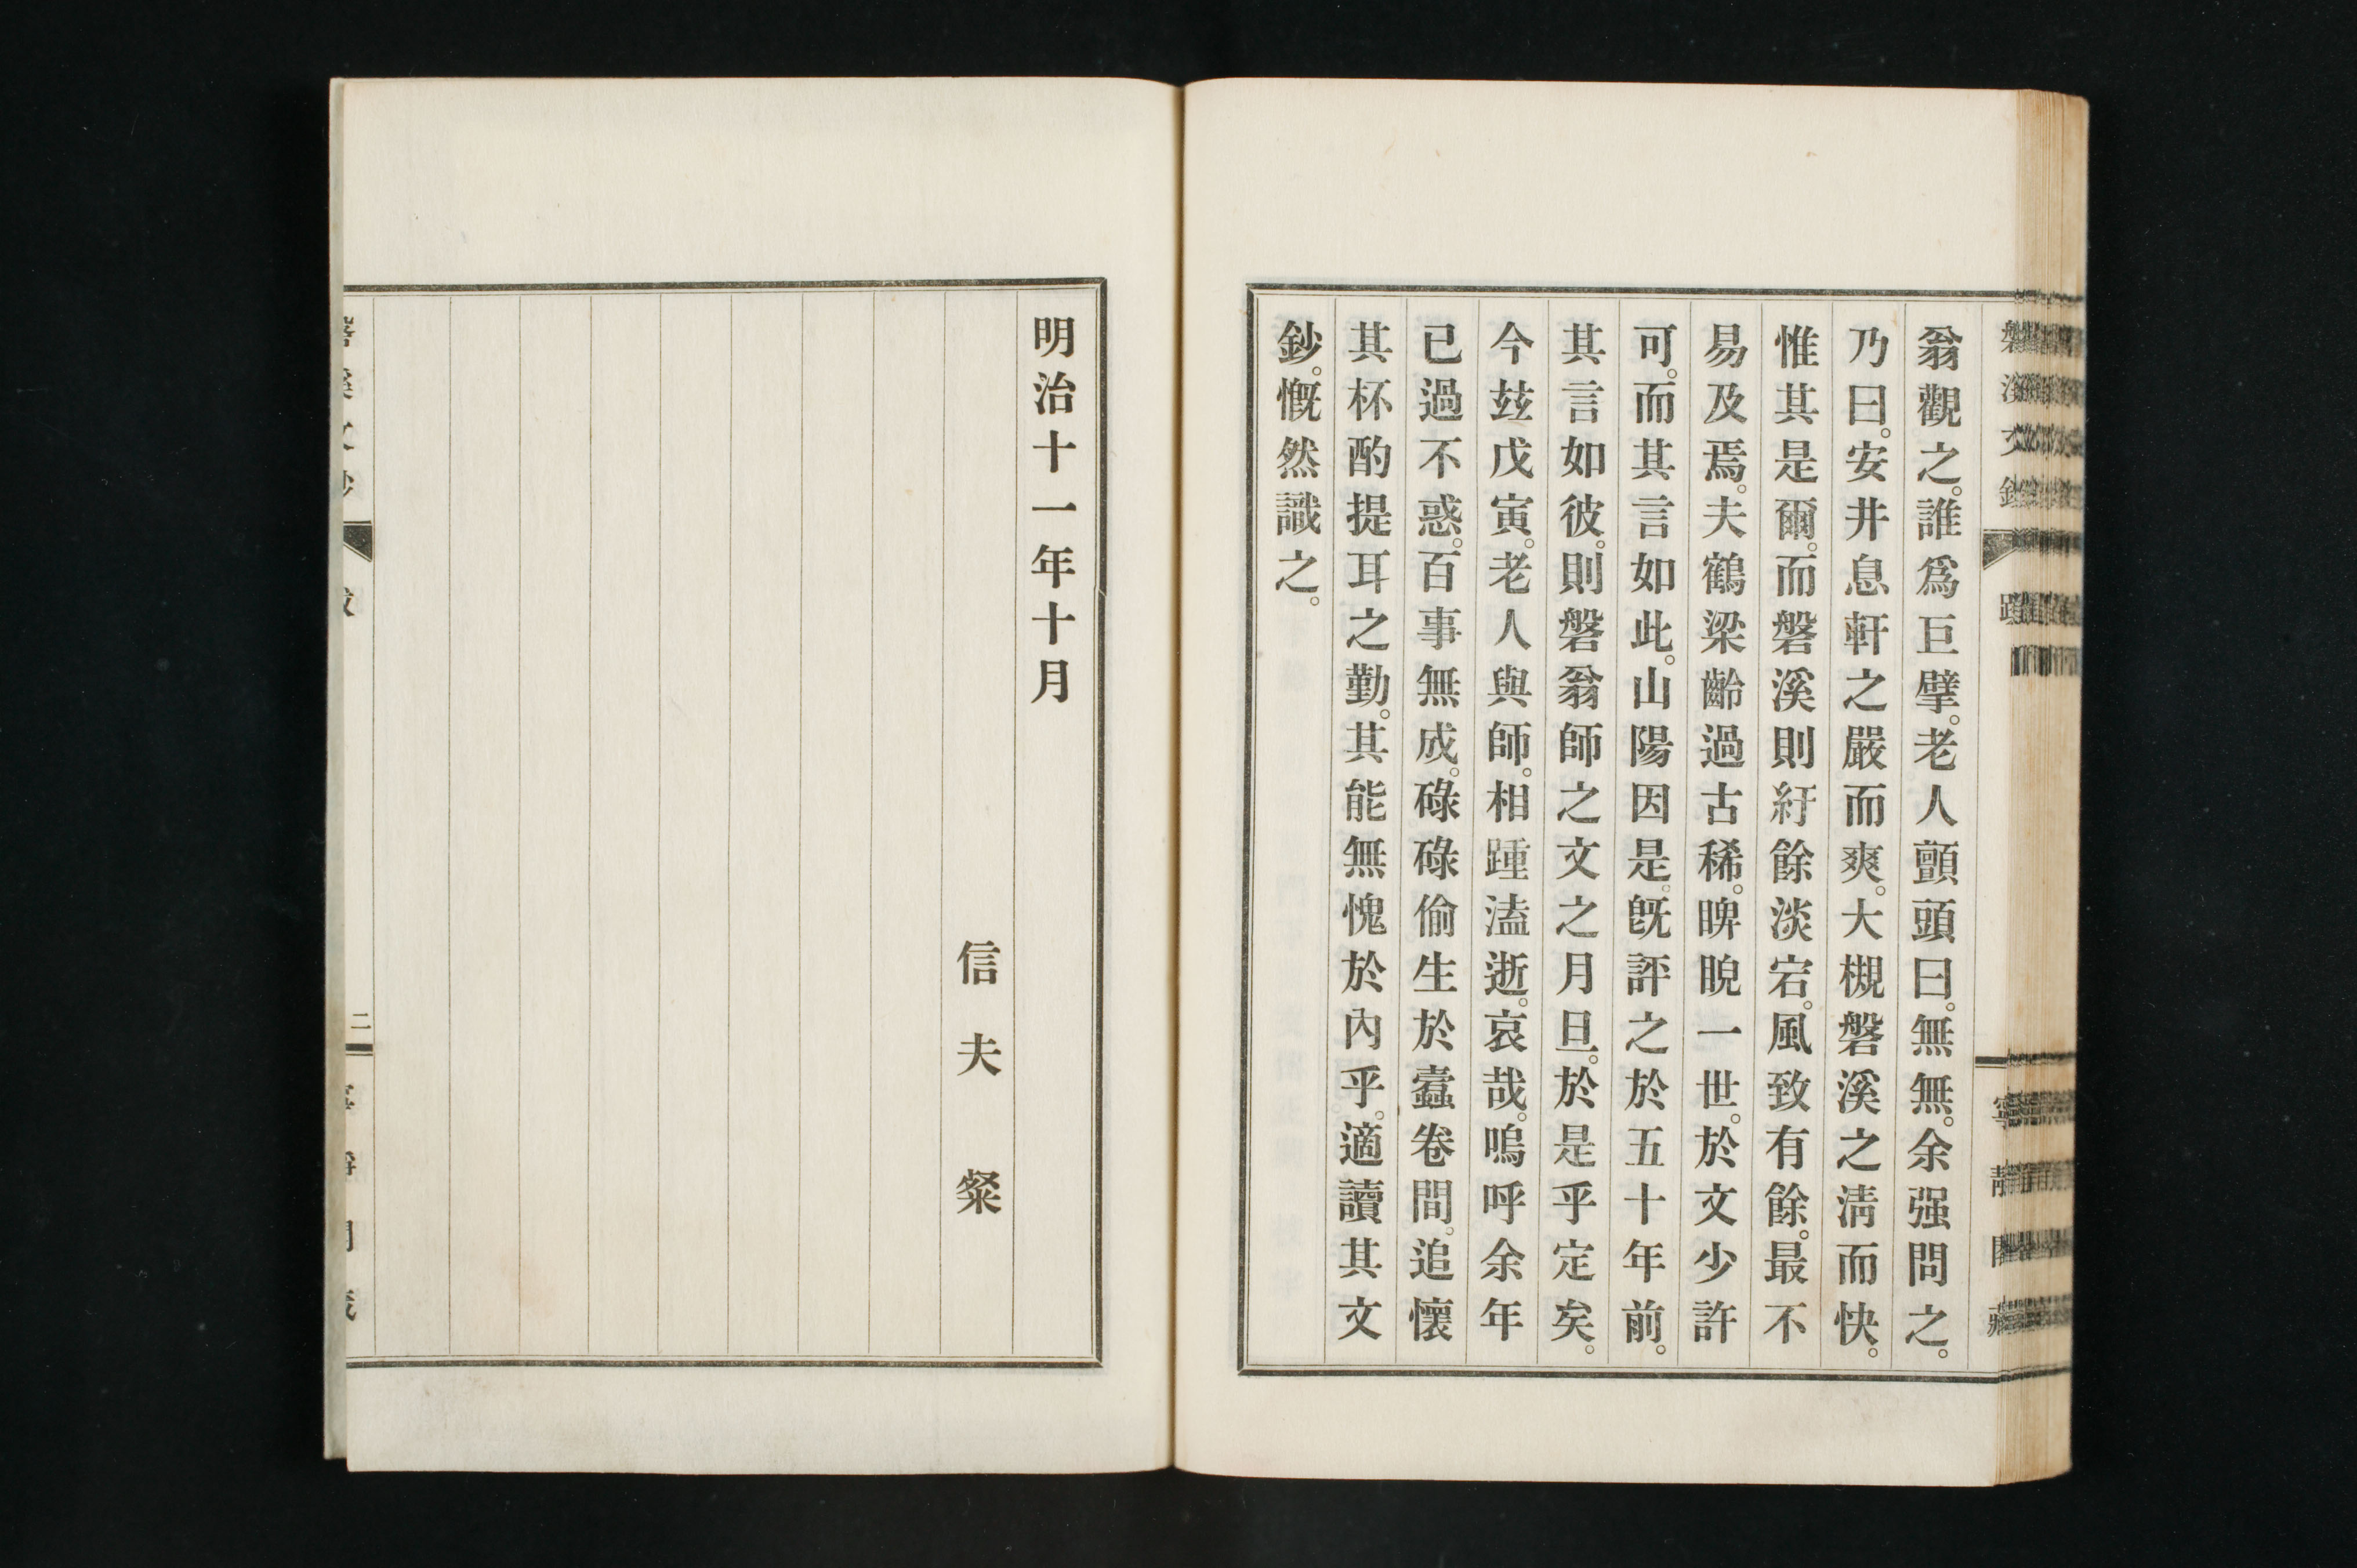 翁觀之。誰爲巨擘。老人顫頭曰。無無。余强問之。
乃曰。安井息軒之嚴而爽。大槻磐溪之淸而快。
惟其是爾。而磐溪則紆餘淡宕。風致有餘。最不
易及焉。夫鶴梁齡過古稀。睥睨一世。於文少許
可。而其言如此。山陽因是。旣評之於五十年前。
其言如彼。則磐翁師之文之月旦。於是乎定矣。
今玆戊寅。老人與師。相踵溘逝。哀哉。嗚呼余年
已過不惑。百事無成。碌碌偷生於蠧卷間。追懷
其杯酌提耳之勤。其能無愧於內乎。適讀其文
鈔。慨然識之。
明治十一年十月
信夫 粲
二